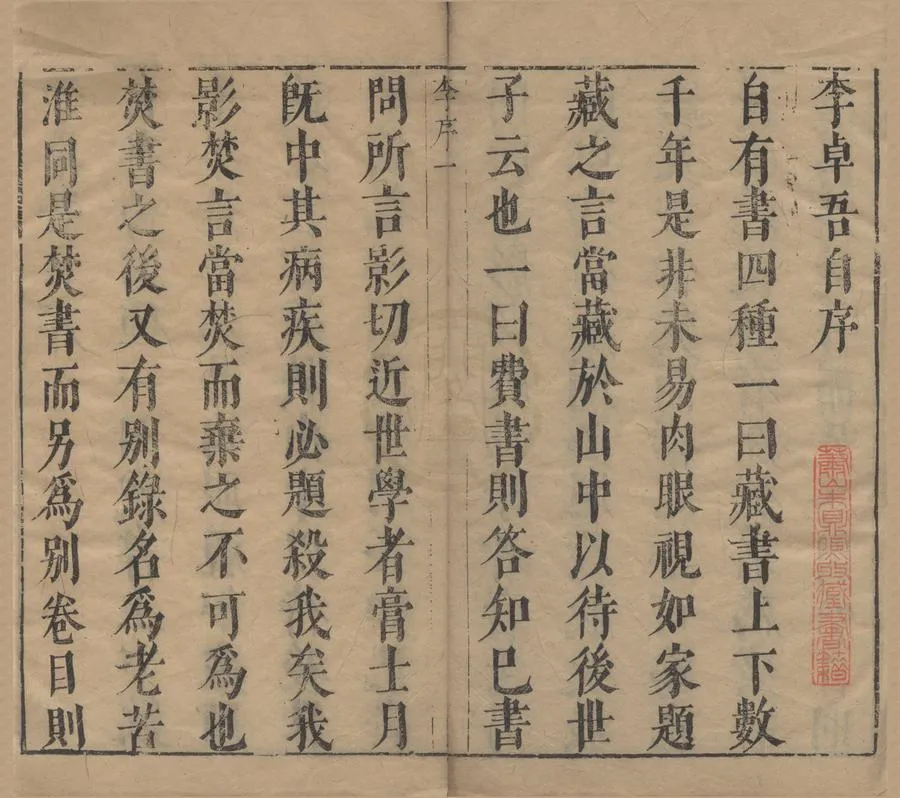 李卓吾自序
自有書四種一曰藏書上下數
千年是非未易肉眼視如家題
藏之言當藏於山中以待後世
子云也一曰費書則答知巳書
李序一
問所言影切近世學者膏士月
旣中其病疾則必題殺我矣我
影焚言當焚而棄之不可爲也
焚書之後又有别錄名爲老苦
淮同是焚書而另爲别卷目則